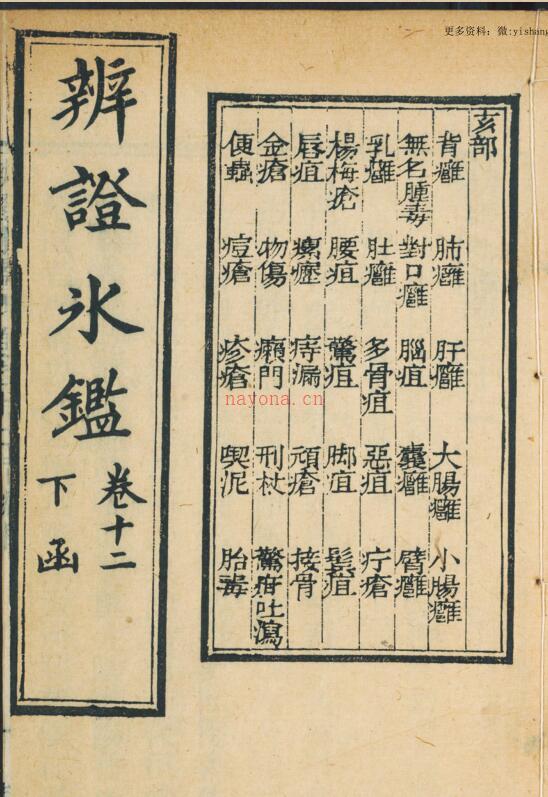 更多资料：微:yishang
亥部
背癰 肺癰 肝癰 大腸癰 小腸癰
無名腫毒 對口癰 腦疽 囊癰 臂癰
乳癰 肚癰 多骨疽 惡疽 疔瘡
楊梅瘡 腰疽 擎疽 脚疽 鬢疽
唇疽 瘰癧 痔漏 頑瘡 接骨
金瘡 物傷 癩門 刑杖 驚疳吐瀉
便蟲 痘瘡 疹瘡 喫泥 胎毒
辨證氷鑑
卷十二
下函
nayona.cn